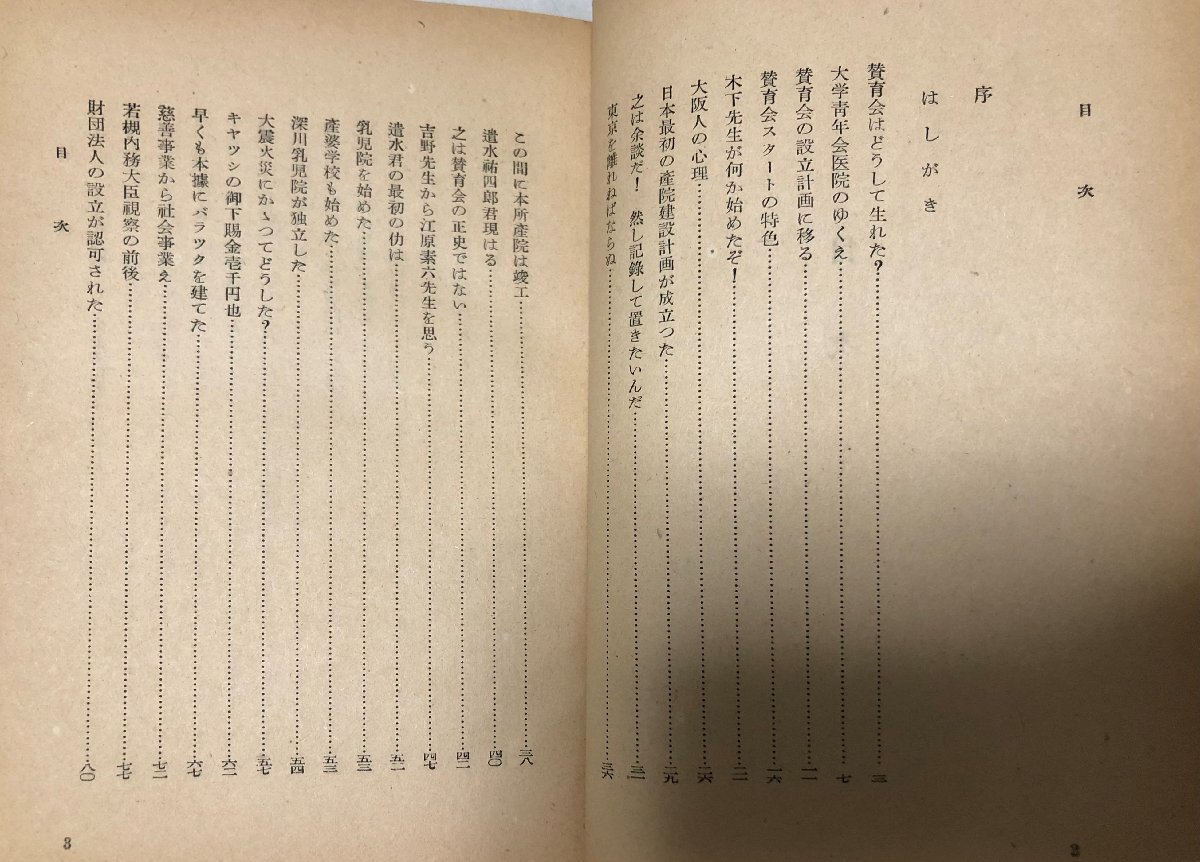 目次
序
はしがき
賛育会はどうして生れた？……三
大学青年会医院のゆくえ……七
賛育会の設立計画に移る……一一
賛育会スタートの特色……一六
木下先生が何か始めたぞ！……二一
大阪人の心理……二六
日本最初の産院建設計画が成立つた……二九
之は余談だ！　然し記錄して置きたいんだ……三一
東京を離れねばならぬ……三六
2
この間に本所產院は竣工……三八
遣水祐四郎君現はる……四〇
之は賛育会の正史ではない……四二
吉野先生から江原素六先生を思う……四七
遣水君の最初の仂は……五二
乳児院を始めた……五三
產婆学校も始めた……五三
深川乳児院が独立した……五四
大震火災にかゝつてどうした？……五七
キヤツシの御下賜金壱千円也……六二
早くも本據にバラツクを建てた……六七
慈善事業から社会事業え……七二
若槻内務大臣視察の前後……七七
財団法人の設立が認可された……八〇
目次
3